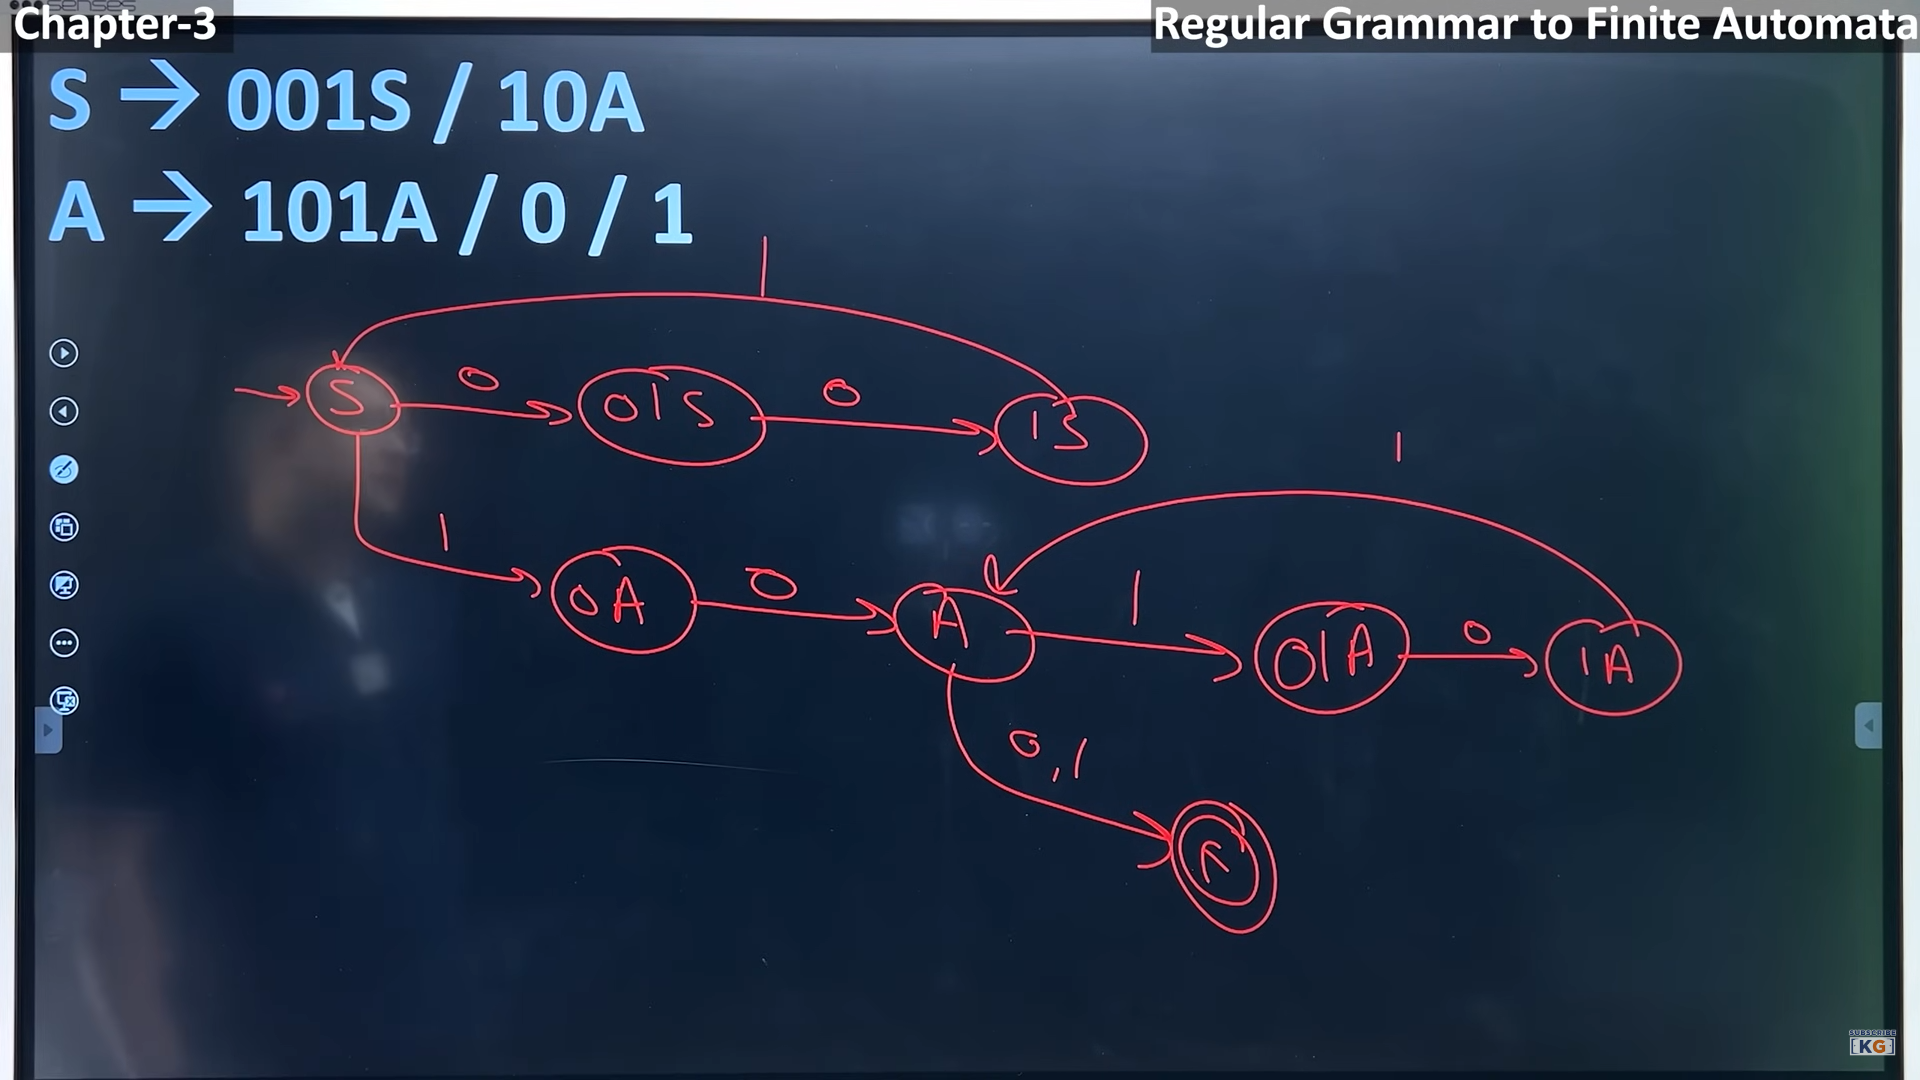 Chapter-3
Regular Grammar to Finite Automata
S → 001S / 10A
A → 101A / 0 / 1
1
S 0 01S 0 1S
1
1 0A 0 A 1 01A 0 1A
0,1
SUBSCRIBE
KG